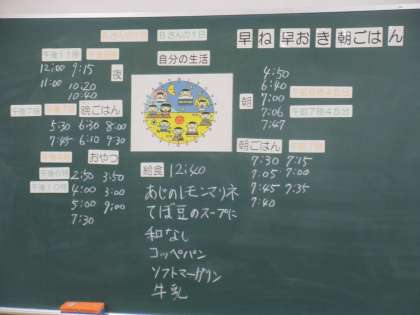 Aさんの1日
Bさんの1日
早ね 早おき 朝ごはん
自分の生活
午後11時
夜
12:00 9:15
11:00 10:20
10:40
晩ごはん
午後7時
5:30 6:30 8:00
7:45 6:10 9:30
おやつ
午後10時
2:50 3:50
4:00 3:00
5:00 9:00
7:30
朝
4:50
6:40
7:00
7:06
7:47
午前6時45分
午前7時45分
朝ごはん
7:30 7:15
7:05 7:00
7:45 7:35
7:40
給食 12:40
あじのレモンマリネ
てぼ豆のスープに
和なし
コッペパン
ソフトマーガリン
牛乳